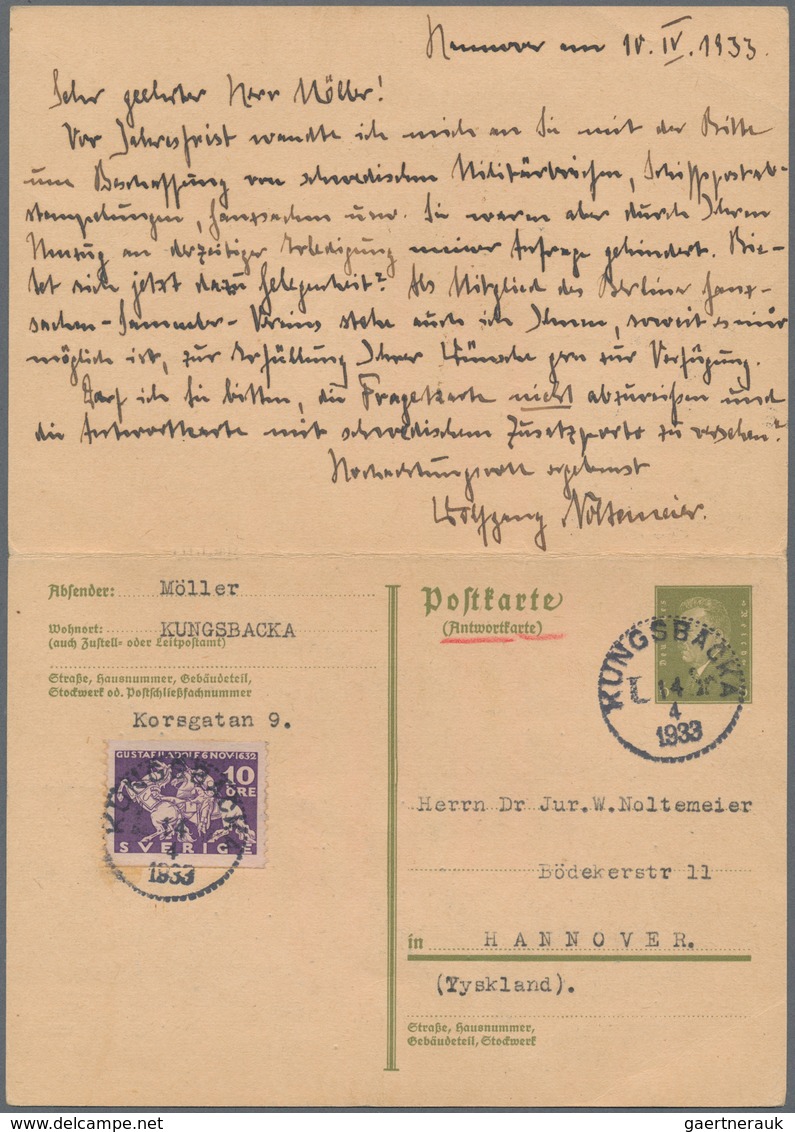 Hannover am 10. IV. 1933.
Sehr geehrter Herr Möller!
Vor Jahresfrist wandte ich mich an Sie mit der Bitte
um Beschaffung von schwedischen Militärbriefen, Schiffspostab-
stempelungen, Ganzsachen usw. Sie waren aber durch Ihren
Umzug an derzeitiger Erledigung meiner Anfrage gehindert. Bie-
tet sich jetzt dazu Gelegenheit? Als Mitglied des Berliner Ganz-
sachen-Sammler-Vereins stehe auch ich Ihnen, soweit es mir
möglich ist, zur Erfüllung Ihrer Wünsche gern zur Verfügung.
Darf ich Sie bitten, die Fragekarte nicht abzureißen und
die Antwortkarte mit schwedischem Zusatzporto zu versehen?
Hochachtungsvoll ergebenst
Wolfgang Noltemeier.
Absender: Möller
Wohnort: KUNGSBACKA
(auch Zustell- oder Leitpostamt)
Straße, Hausnummer, Gebäudeteil,
Stockwerk od. Postschließfachnummer
Korsgatan 9.
GUSTAF II ADOLF 6 NOV 1632
10
ÖRE
SVERIGE
KUNGSBACKA
14
4
1933
Postkarte
(Antwortkarte)
KUNGSBACKA
14
4
1933
Herrn Dr Jur.W.Noltemeier
Bödekerstr 11
in HANNOVER.
(Tyskland).
Straße, Hausnummer,
Gebäudeteil, Stockwerk
gaertnerauk
delcampe.net